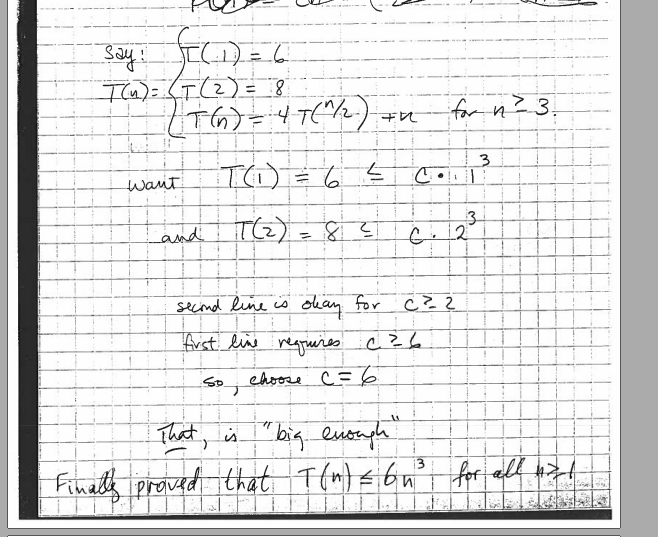 Say: T(1) = 6
T(n) = T(2) = 8
T(n) = 4T(n/2) + n for n ≥ 3.
want T(1) = 6 ≤ C · 1³
and T(2) = 8 ≤ C · 2³
second line is okay for C ≥ 2
first line requires C ≥ 6
so, choose C = 6
That, is "big enough"
Finally proved that T(n) ≤ 6n³ for all n ≥ 1